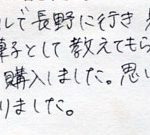 ルで長野に行き
菓子として教えてもら
購入しました。思い
りました。